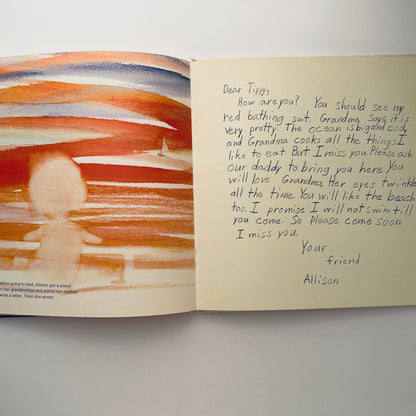 before going to bed, Allison got a piece
her grandmother and asked her mother
write a letter. Then she wrote:
Dear Tippy,
How are you? You should see my
red bathing suit. Grandma says it is
very pretty. The ocean is big and cod,
and Grandma cooks all the things I
like to eat. But I miss you. Please ask
our daddy to bring you here. You
will love Grandma. Her eyes twinkle
all the time. You will like the beach
too. I promise I will not swim till
you come. So Please come soon.
I miss you.
Your
friend
Allison